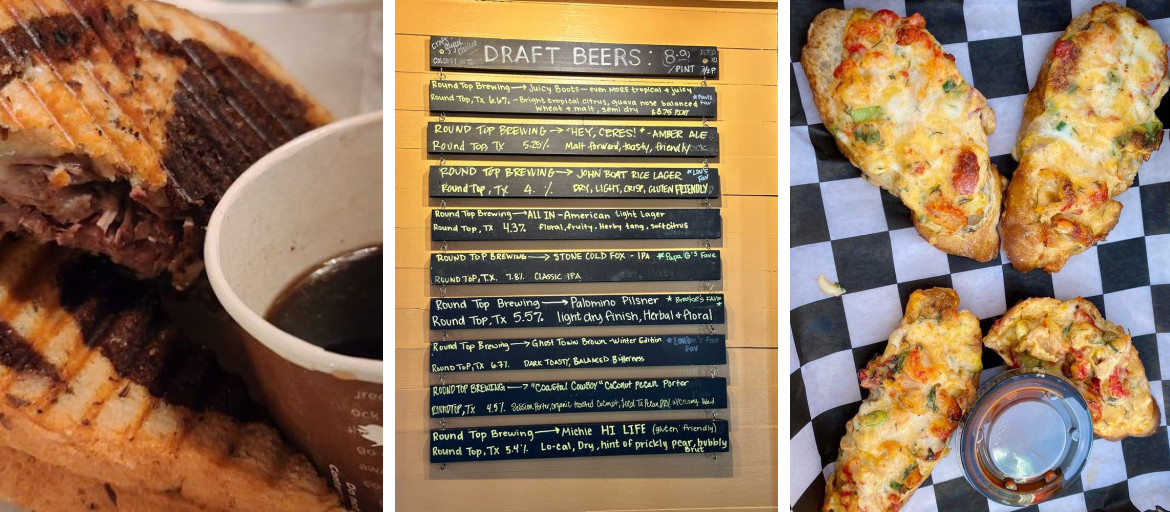 DRAFT BEERS: 8.0)
/PINT ½P.
Round Top Brewing → Juicy Boots — even MORE tropical + juicy
Round Top, Tx 6.6%. - Bright tropical citrus, guava nose balanced
wheat + malt, semi dry
ROUND TOP BREWING → "HEY, CERES!" - AMBER ALE
Round Top, TX 5.25% Malt forward, toasty, friendly
ROUND TOP BREWING → JOHN BOAT RICE LAGER *LOU'S FAV
Round Top, TX 4. % DRY, LIGHT, CRISP, GLUTEN FRIENDLY
Round Top Brewing → ALL IN - American Light Lager
Round Top, TX 4.3% floral, fruity, Herby tang, soft citrus
ROUND TOP BREWING → STONE COLD FOX - IPA *Papa G's Fave
ROUND TOP, TX. 7.8% CLASSIC IPA
Round Top Brewing → Palomino Pilsner * Brookie's FAV
Round Top, Tx 5.5% light dry finish, Herbal + floral
Round Top Brewing → Ghost Town Brown - Winter Edition
Round Top, Tx 6.7% DARK TOASTY, BALANCED Bitterness
ROUND TOP BREWING → "Coastal Cowboy" Coconut pecan Porter
ROUND TOP, TX 4.5% Session Porter, organic toasted Coconut, local Tx Pecan, DRY w/ creamy
Round Top Brewing → Michie HI LIFE (gluten friendly)
Round Top, TX 5.4% Lo-cal, Dry, hint of prickly pear, bubbly
Brut